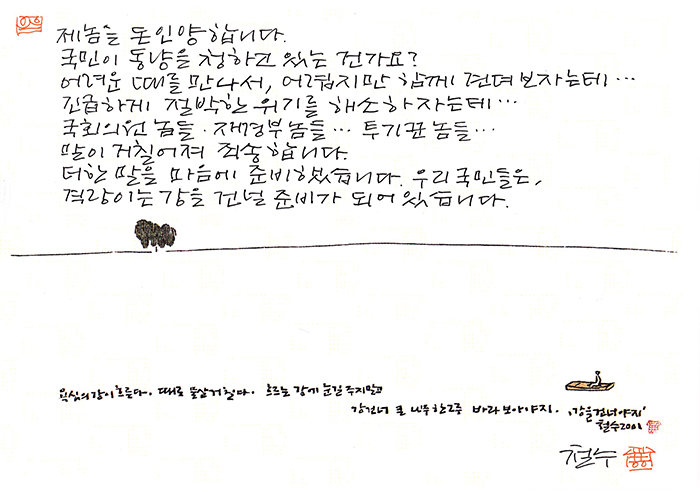 제놈들 돈인양 합니다.
국민이 동냥을 청하고 있는 건가요?
어려운 때를 만나서, 어렵지만 함께 견뎌보자는데…
긴급하게 절박한 위기를 해소하자는데…
국회의원 놈들 · 재정부 놈들… 투기꾼 놈들…
말이 거칠어져 죄송합니다.
더한 말을 마음에 준비했습니다. 우리 국민들은,
격랑이는 강을 건널 준비가 되어 있습니다.
욕심의 강이 흐른다. 때로 물살 거칠다. 흐르는 강에 눈길 주지말고
강건너 큰 나무 한그루 바라보아야지. '강을 건너야지'
철수 2001
철수